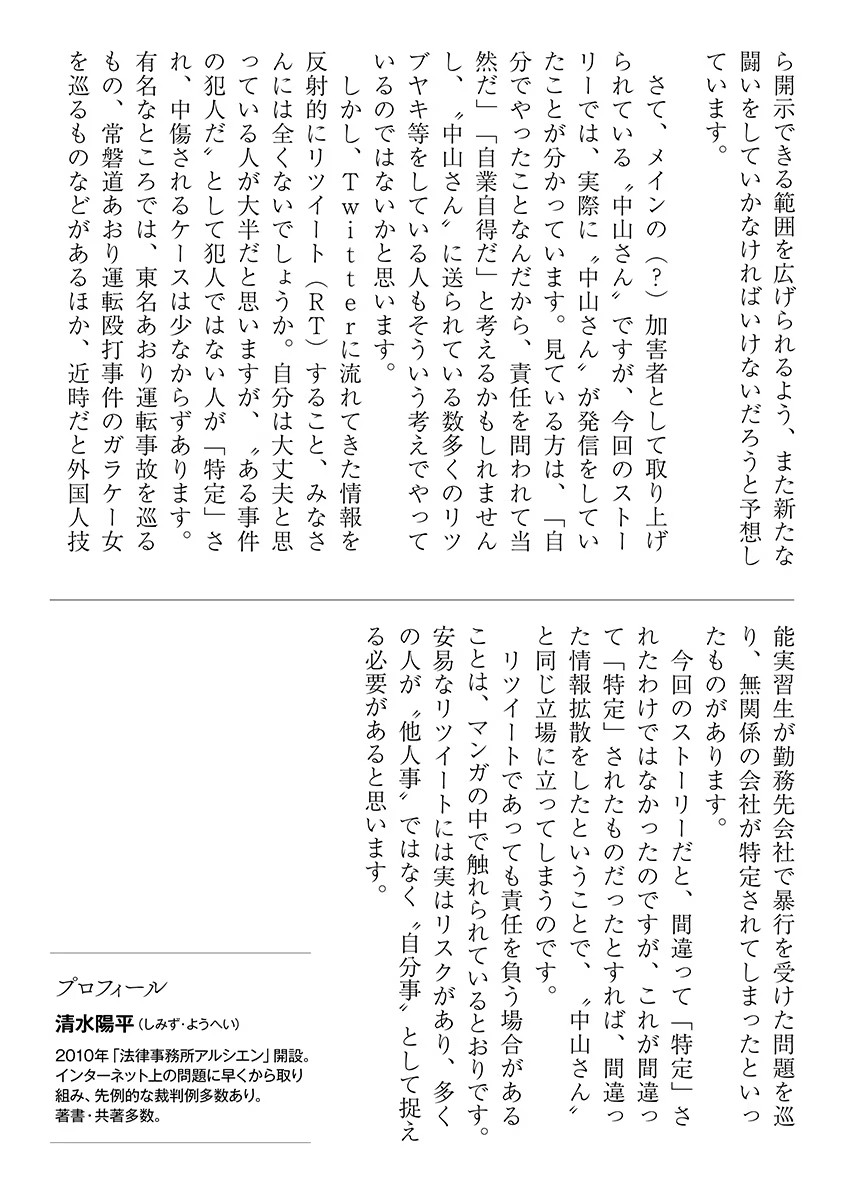 ら開示できる範囲を広げられるよう、また新たな
闘いをしていかなければいけないだろうと予想し
ています。
さて、メインの（？）加害者として取り上げ
られている〝中山さん〟ですが、今回のストー
リーでは、実際に〝中山さん〟が発信をしてい
たことが分かっています。見ている方は、「自
分でやったことなんだから、責任を問われて当
然だ」「自業自得だ」と考えるかもしれません
し、〝中山さん〟に送られている数多くのリツ
ブヤキ等をしている人もそういう考えでやって
いるのではないかと思います。
しかし、Twitterに流れてきた情報を
反射的にリツイート（RT）すること、みなさ
んには全くないでしょうか。自分は大丈夫と思
っている人が大半だと思いますが、〝ある事件
の犯人だ〟として犯人ではない人が「特定」さ
れ、中傷されるケースは少なからずあります。
有名なところでは、東名あおり運転事故を巡る
もの、常磐道あおり運転殴打事件のガラケー女
を巡るものなどがあるほか、近時だと外国人技
能実習生が勤務先会社で暴行を受けた問題を巡
り、無関係の会社が特定されてしまったといっ
たものがあります。
今回のストーリーだと、間違って「特定」さ
れたわけではなかったのですが、これが間違っ
て「特定」されたものだったとすれば、間違っ
た情報拡散をしたということで、〝中山さん〟
と同じ立場に立ってしまうのです。
リツイートであっても責任を負う場合がある
ことは、マンガの中で触れられているとおりです。
安易なリツイートには実はリスクがあり、多く
の人が〝他人事〟ではなく〝自分事〟として捉え
る必要があると思います。
プロフィール
清水陽平（しみず・ようへい）
2010年「法律事務所アルシエン」開設。
インターネット上の問題に早くから取り
組み、先例的な裁判例多数あり。
著書・共著多数。